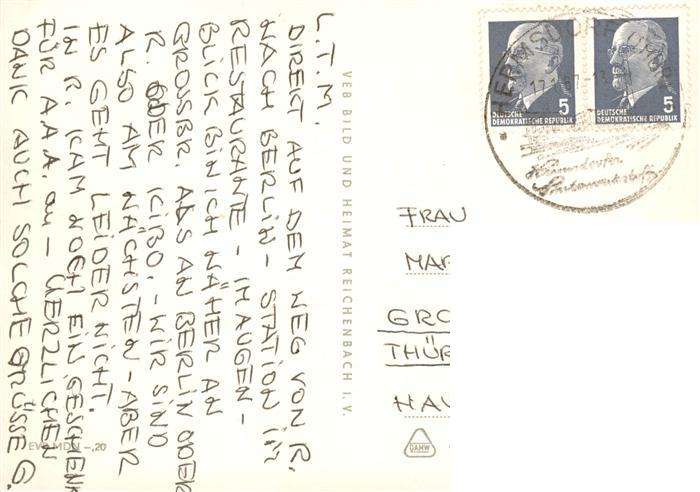 L.T.M.
DIREKT AUF DEM WEG VON R.
NACH BERLIN - STATION IM
RESTAURANTE - IM AUGEN -
BLICK BIN ICH NÄHER AN
GROSBR. ALS AN BERLIN ODER
R. ODER KIBO. - WIR SIND
ALSO AM NÄCHSTEN - ABER
ES GEHT LEIDER NICHT.
IN R. KAM NOCH EIN GESCHENK
FÜR A.A. an - HERZLICHEN
DANK AUCH SOLCHE GRÜSSE G.
VEB BILD UND HEIMAT REICHENBACH I. V.
EVP MDN -,20
5
DEUTSCHE
DEMOKRATISCHE REPUBLIK
5
DEUTSCHE
DEMOKRATISCHE REPUBLIK
HERMSDORF
Hermsdorfer
FRAU
MAR
GRO
THÜR
HAU
DAMW